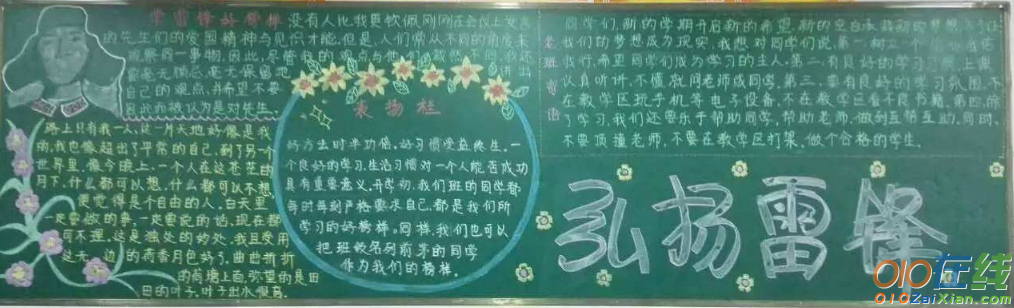 学雷锋好榜样
没有人比我更钦佩刚刚在会议上发言
的先生们的爱国精神与见识才能。但是，人们常从不同的角度来
观察同一事物。因此，尽管我的观点与他们截然不同，我还
是毫无顾忌、毫无保留地讲出
自己的观点，并希望不要
因此而被认为是对先生
路上只有我一人，这一片天地好像是我
的，我也像超出了平常的自己，到了另一个
世界里。像今晚上，一个人在这苍茫的
月下，什么都可以想，什么都可以不想，
便觉得是个自由的人。白天里
一定要做的事，一定要说的话，现在都
可不理。这是独处的妙处，我且受用
这无边的荷香月色好了。曲曲折折
的荷塘上面，弥望的是田
田的叶子。叶子出水很高
表扬栏
好方法时半功倍，好习惯受益终生。一
个良好的学习，生活习惯对一个人能否成功
具有重要意义。开学初，我们班的同学都
每时每刻严格要求自己，都是我们所
学习的好榜样。同样，我们也可以
把班级名列前茅的同学
作为我们的榜样。
老班寄语
同学们，新的学期开启新的希望，新的空白承载新的梦想。
我们的梦想成为现实，我想对同学们说，第一树立
我行，希望同学们成为学习的主人。第二，有良好的学习习惯，上课
认真听讲，不懂就问老师或同学。第三，要有良好的学习氛围，不
在教学区玩手机等电子设备，不在教学区看不良书籍。第四，除
了学习，我们还要乐于帮助同学，帮助老师，做到互帮互助。同时，
不要顶撞老师，不要在教学区打架，做个合格的学生。
弘扬雷锋
010在线
010ZaiXian.com